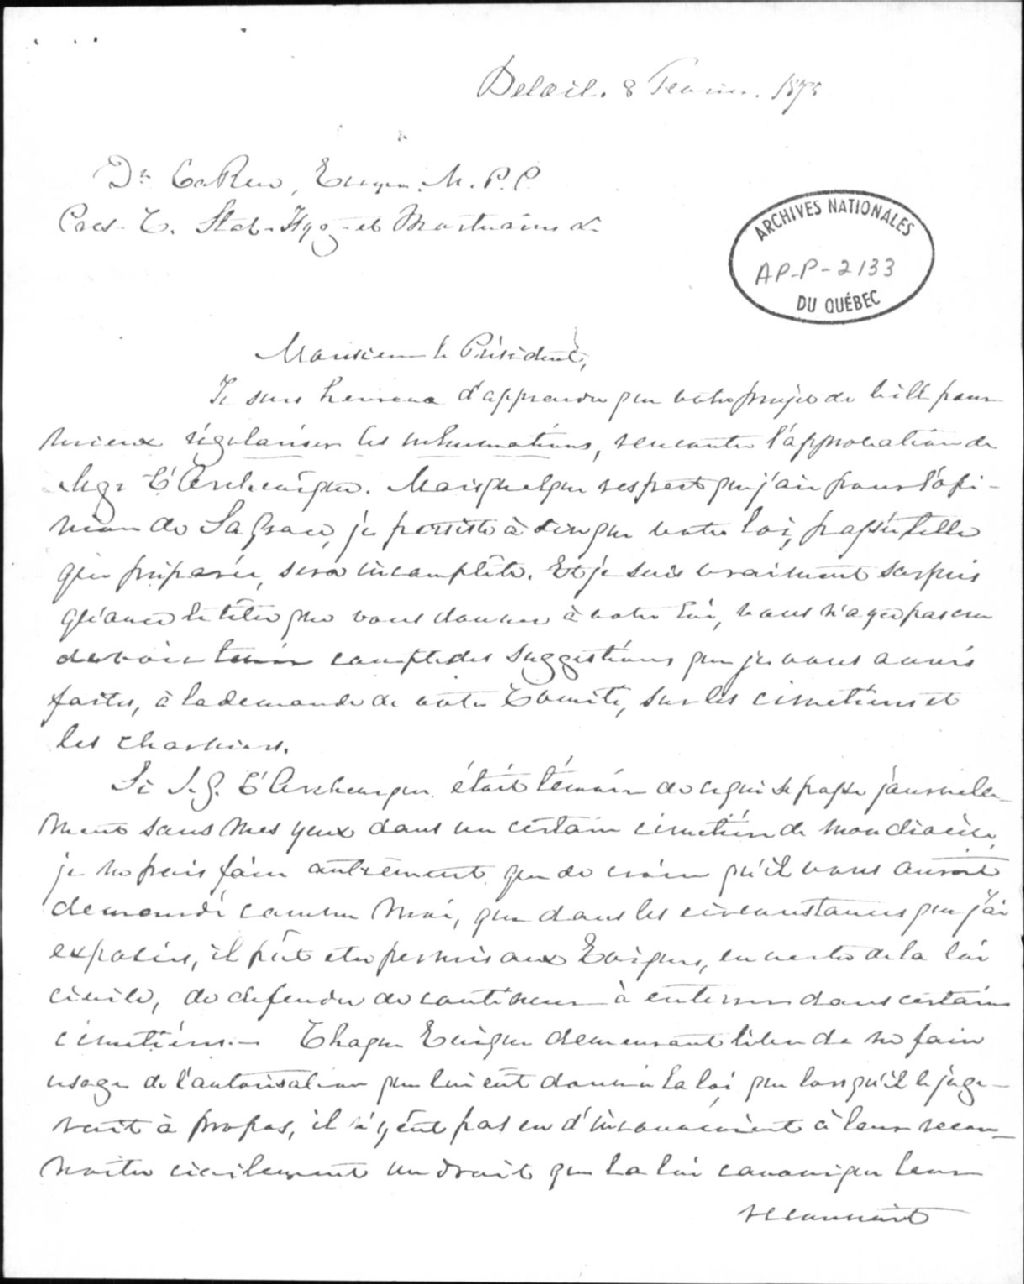 Belœil. 8 Février. 1875
Dr Larue, Ecuyer. M. P. P.
Pres. C. Stat. Hyg. et Mortuaires &.
ARCHIVES NATIONALES
AP-P-2133
DU QUÉBEC
Monsieur le Président,
Je suis heureux d'apprendre que votre projet de bill pour
mieux régulariser les inhumations, rencontre l'approbation de
Mgr L'Archevêque. Mais quelque respect que j'aie pour l'opi-
nion de Sa Grace, je persiste à dire que votre loi, passée telle
que préparée, sera incomplète. Et je suis vraiment surpris
qu'avec le titre que vous donnez à votre loi, vous n'ayez pas cru
devoir tenir compte des suggestions que je vous avais
faites, à la demande de votre Comité, sur les cimetières et
les charniers.
Si S. G. L'Archevêque était témoin de ce qui se passe journelle-
ment sous mes yeux dans un certain cimetière de mon diocèse,
je ne puis faire autrement que de croire qu'il vous aurait
demandé comme moi, que dans les circonstances que j'ai
exposées, il fût permis aux Evêques, en vertu de la loi
civile, de défendre de continuer à enterrer dans certains
cimetières. Chaque Evêque demeurant libre de ne faire
usage de l'autorisation que lui eût donnée la loi, que lorsqu'il le juge-
rait à propos, il n'y eût pas eu d'inconvénient à leur recon-
naître civilement un droit que la loi canonique leur
reconnait